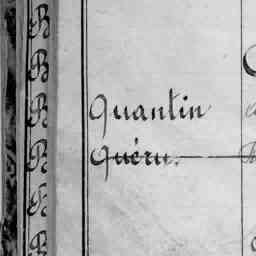 Quantin
Quéru.